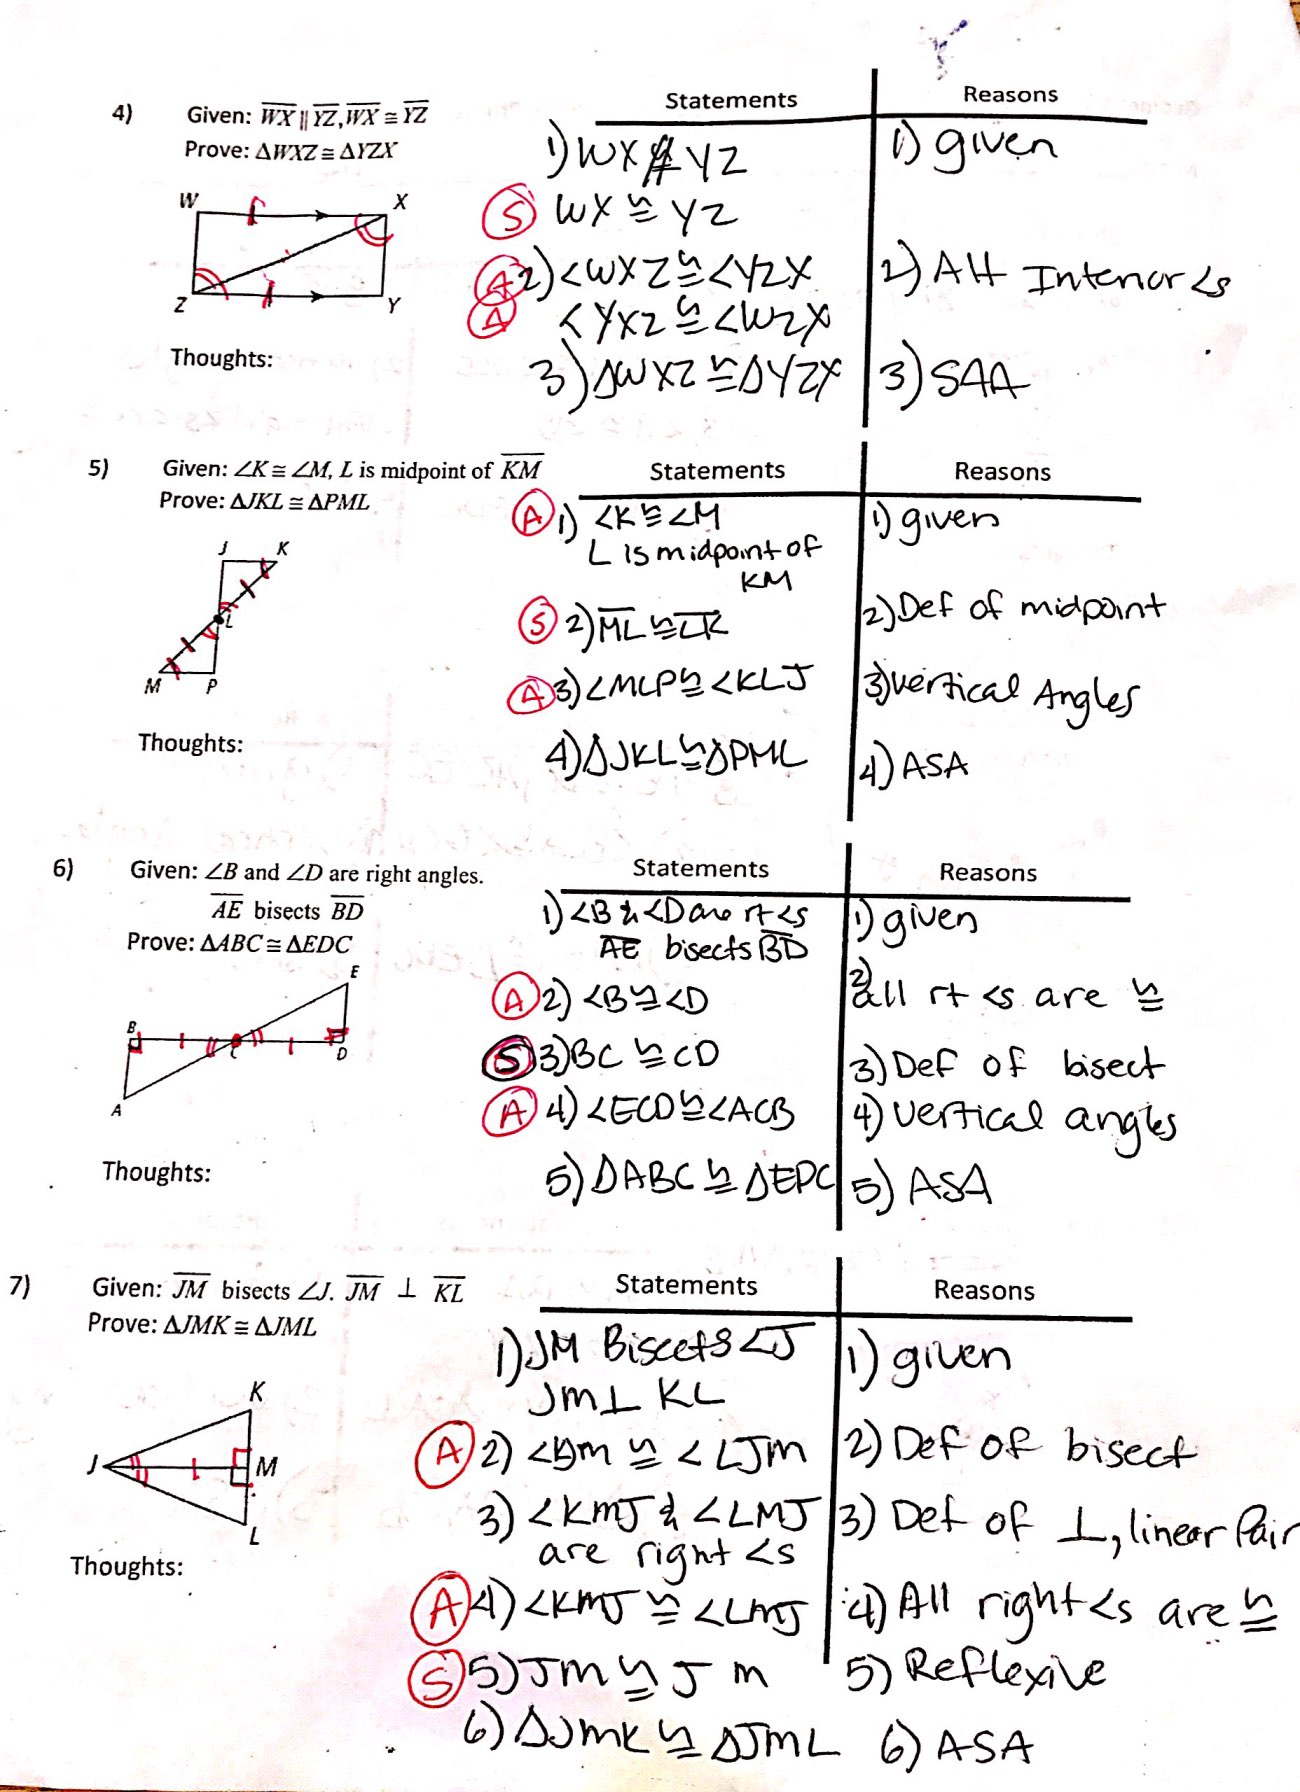 4) Given: WX ∥ YZ, WX ≅ YZ
Prove: ΔWXZ ≅ ΔYZX
W X
Z Y
Thoughts:
Statements Reasons
1) WX ∦ YZ 1) given
S WX ≅ YZ
A 2) <WXZ ≅ <YZX 2) Alt Interior <s
A <YXZ ≅ <WZX
3) ΔWXZ ≅ ΔYZX 3) SAA
5) Given: ∠K ≅ ∠M, L is midpoint of KM
Prove: ΔJKL ≅ ΔPML
J K
L
M P
Thoughts:
Statements Reasons
A 1) <K ≅ <M 1) given
L is midpoint of
KM
S 2) ML ≅ LK 2) Def of midpoint
A 3) <MLP ≅ <KLJ 3) vertical Angles
4) ΔJKL ≅ ΔPML 4) ASA
6) Given: ∠B and ∠D are right angles.
AE bisects BD
Prove: ΔABC ≅ ΔEDC
E
B C D
A
Thoughts:
Statements Reasons
1) <B & <D are rt <s 1) given
AE bisects BD
A 2) <B ≅ <D 2) all rt <s are ≅
S 3) BC ≅ CD 3) Def of bisect
A 4) <ECD ≅ <ACB 4) vertical angles
5) ΔABC ≅ ΔEDC 5) ASA
7) Given: JM bisects ∠J. JM ⊥ KL
Prove: ΔJMK ≅ ΔJML
K
J M
L
Thoughts:
Statements Reasons
1) JM Biscets <J 1) given
JM ⊥ KL
A 2) ≅ <LJM 2) Def of bisect
3) <KMJ & <LMJ 3) Def of ⊥, linear Pair
are right <s
A 4) <KMJ ≅ <LMJ 4) All right <s are ≅
S 5) JM ≅ JM 5) Reflexive
6) ΔJMK ≅ ΔJML 6) ASA